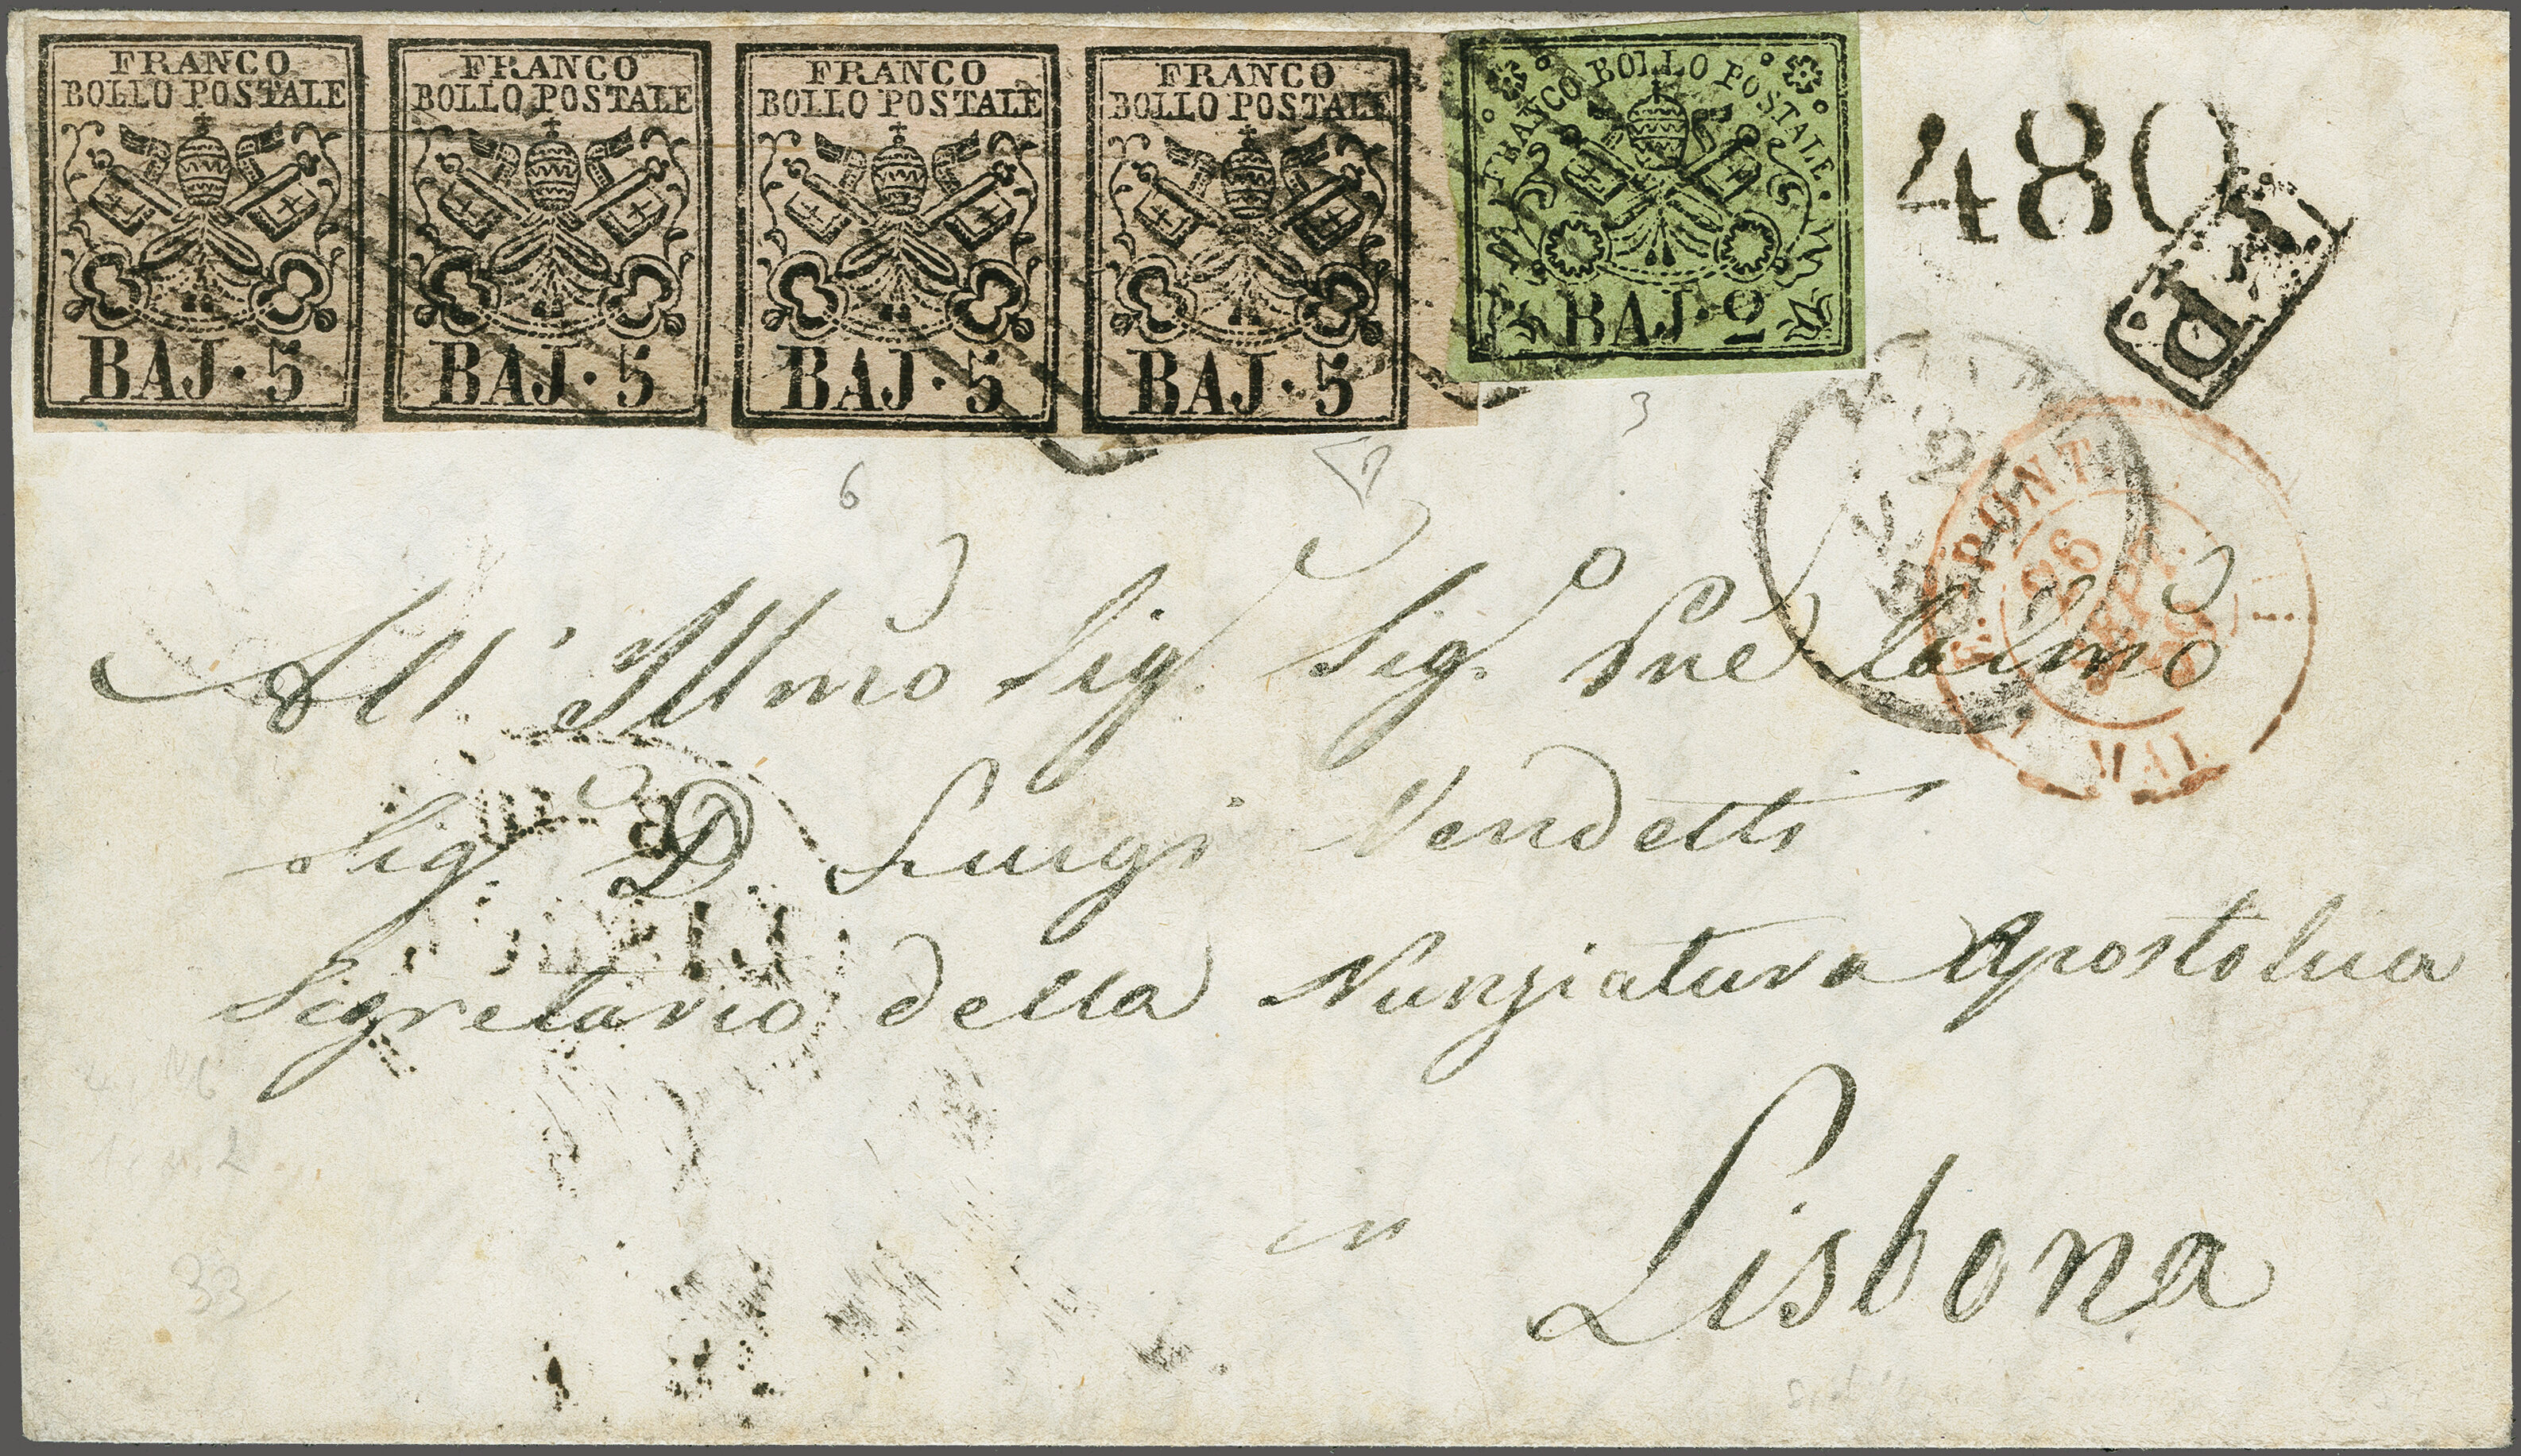 FRANCO
BOLLO POSTALE
BAJ. 5
FRANCO
BOLLO POSTALE
BAJ. 5
FRANCO
BOLLO POSTALE
BAJ. 5
FRANCO
BOLLO POSTALE
BAJ. 5
FRANCO BOLLO POSTALE
BAJ. 2
480
P.
26
SEPT.
3
6
7
All' Illmo Sig. Sig. Pne Colmo
Sig. D. Luigi Vendetti
Segretario della Nunziatura Apostolica
in Lisbona
33